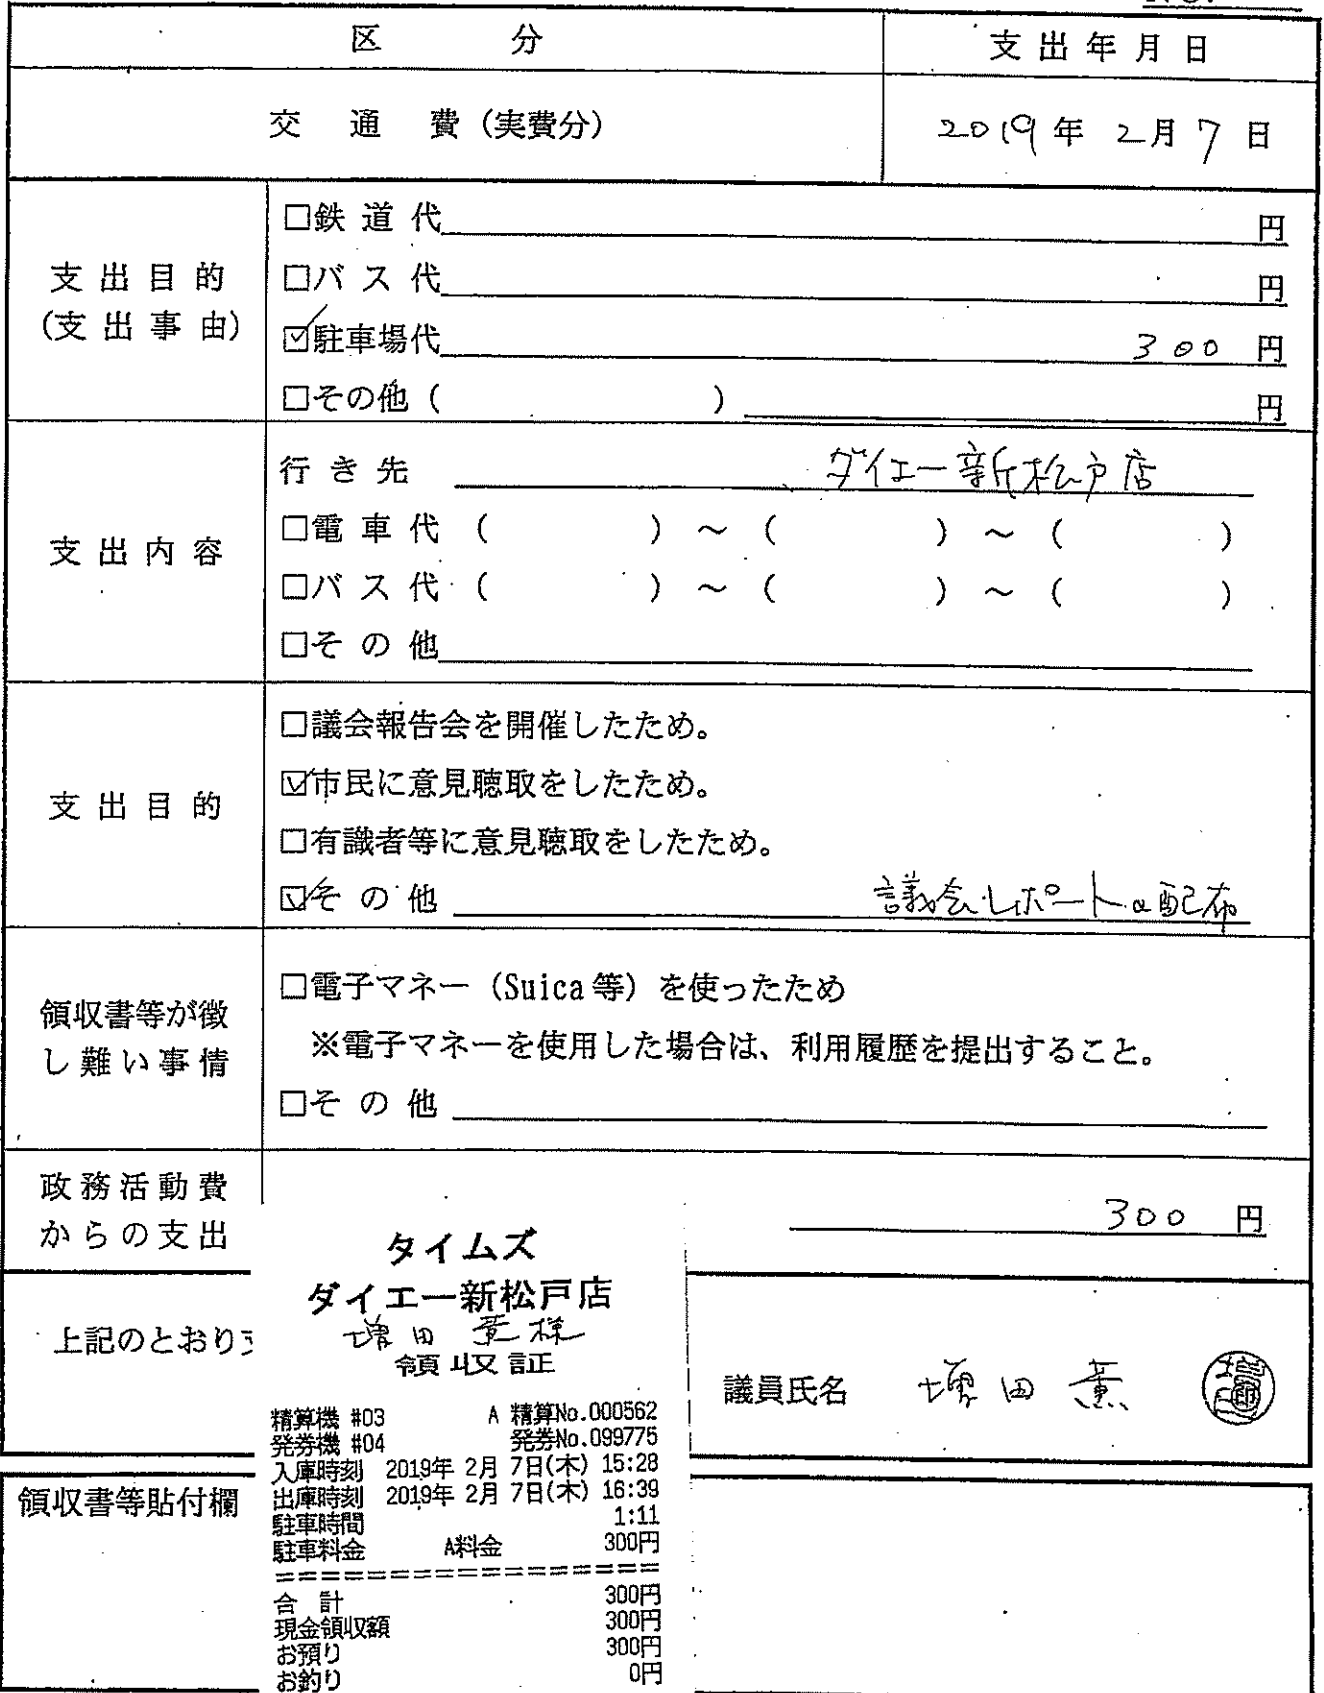 区 分 支出年月日
交 通 費（実費分） 2019年 2月 7日
支出目的
（支出事由）
□鉄道代 円
□バス代 円
☑駐車場代 300 円
□その他（ ） 円
支出内容
行き先 ダイエー新松戸店
□電車代（ ）～（ ）～（ ）
□バス代（ ）～（ ）～（ ）
□その他
支出目的
□議会報告会を開催したため。
☑市民に意見聴取をしたため。
□有識者等に意見聴取をしたため。
☑その他 議会レポートの配布
領収書等が徴
し難い事情
□電子マネー（Suica等）を使ったため
※電子マネーを使用した場合は、利用履歴を提出すること。
□その他
政務活動費
からの支出
300 円
上記のとおり
議員氏名 増田 薫
領収書等貼付欄
タイムズ
ダイエー新松戸店
増田 薫様
領収証
精算機 #03 A 精算No.000562
発券機 #04 発券No.099775
入庫時刻 2019年 2月 7日(木) 15:28
出庫時刻 2019年 2月 7日(木) 16:39
駐車時間 1:11
駐車料金 A料金 300円
==================
合 計 300円
現金領収額 300円
お預り 300円
お釣り 0円